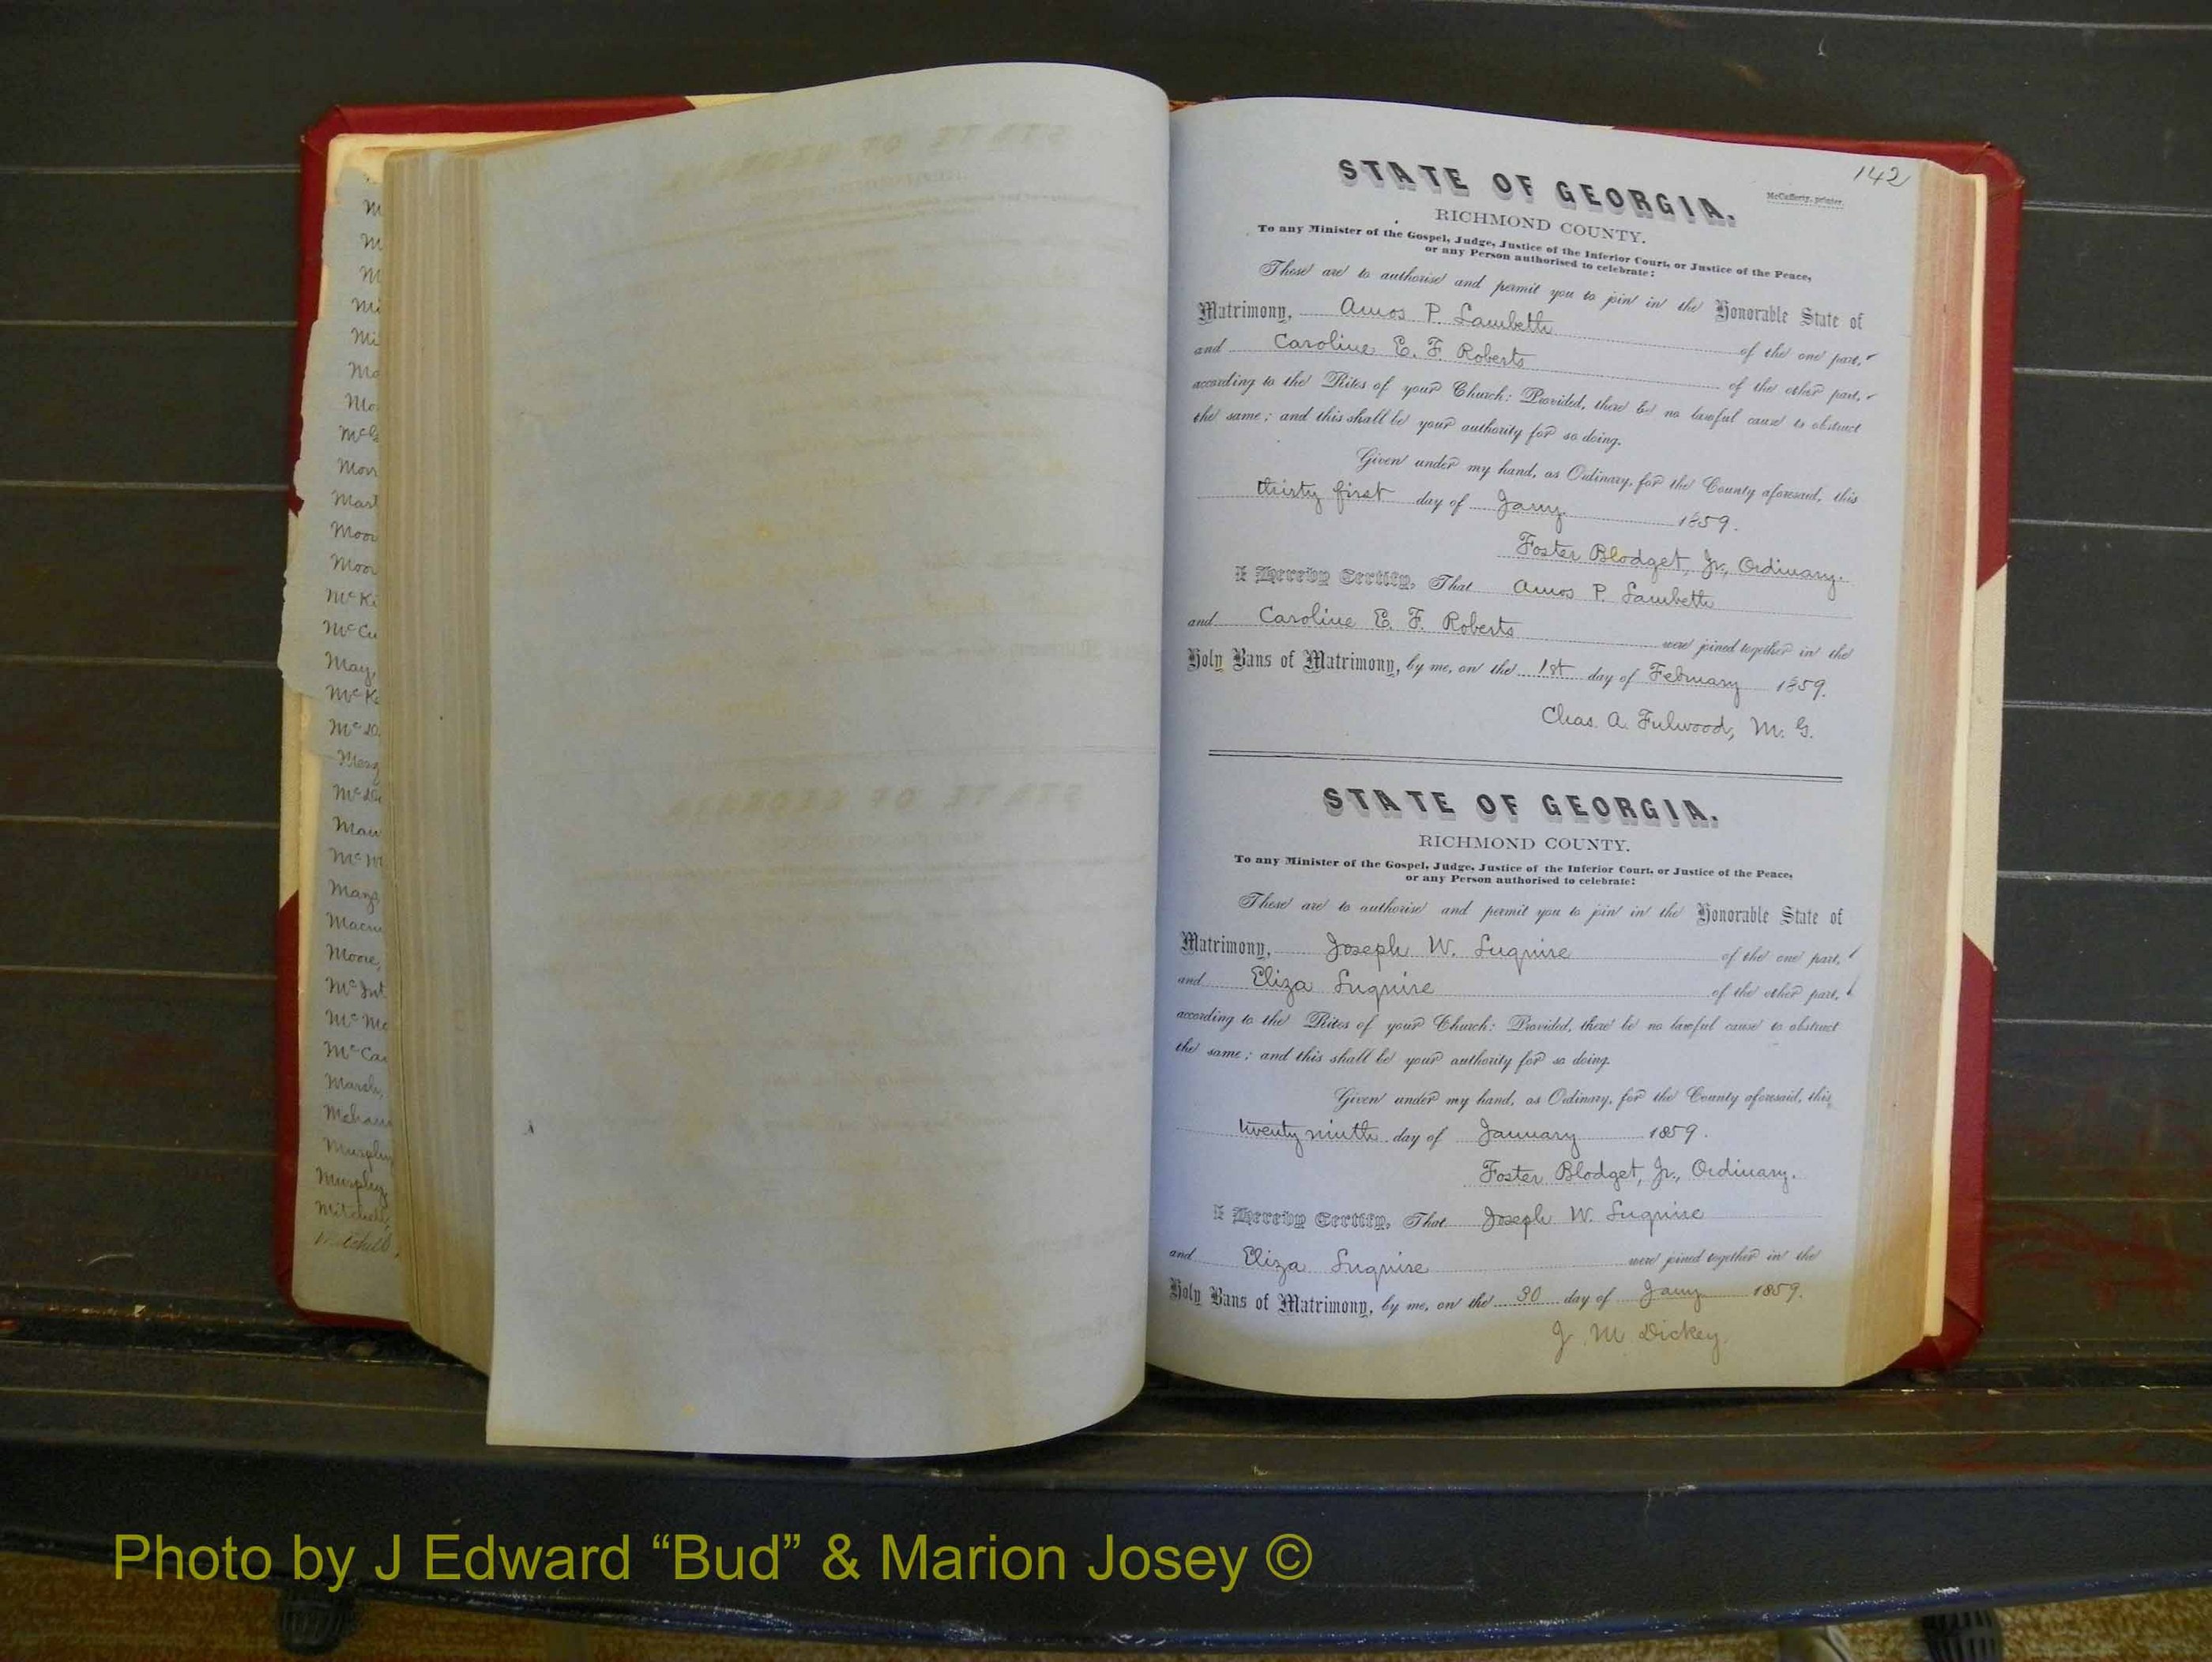 M
M
M
Mi
Mi
Mo
Mo
McG
Morr
Mast
Moor
Moor
McKi
McCu
May,
McK
McD
McD
Mau
Mang
Macm
Moore,
McInt
McMc
McCa
Marsh,
Murphy
Murphy,
Mitchell,
Mitchell,
142
STATE OF GEORGIA.
McCafferty, printer.
RICHMOND COUNTY.
To any Minister of the Gospel, Judge, Justice of the Inferior Court, or Justice of the Peace,
or any Person authorised to celebrate:
These are to authorise and permit you to join in the Honorable State of
Matrimony, Amos P. Lambeth of the one part,
and Caroline E. F. Roberts of the other part,
according to the Rites of your Church: Provided, there be no lawful cause to obstruct
the same; and this shall be your authority for so doing.
Given under my hand, as Ordinary, for the County aforesaid, this
thirty first day of Jany 1859.
Foster Blodget, Jr., Ordinary.
I Hereby Certify, That Amos P. Lambeth
and Caroline E. F. Roberts were joined together in the
Holy Bans of Matrimony, by me, on the 1st day of February 1859.
Chas. A. Fulwood, M. G.
STATE OF GEORGIA.
RICHMOND COUNTY.
To any Minister of the Gospel, Judge, Justice of the Inferior Court, or Justice of the Peace,
or any Person authorised to celebrate:
These are to authorise and permit you to join in the Honorable State of
Matrimony, Joseph W. Luquire of the one part,
and Eliza Luquire of the other part,
according to the Rites of your Church: Provided, there be no lawful cause to obstruct
the same; and this shall be your authority for so doing.
Given under my hand, as Ordinary, for the County aforesaid, this
twenty ninth day of January 1859.
Foster Blodget, Jr., Ordinary.
I Hereby Certify, That Joseph W. Luquire
and Eliza Luquire were joined together in the
Holy Bans of Matrimony, by me, on the 30 day of Jany 1859.
J. M. Dickey
Photo by J Edward “Bud” & Marion Josey ©